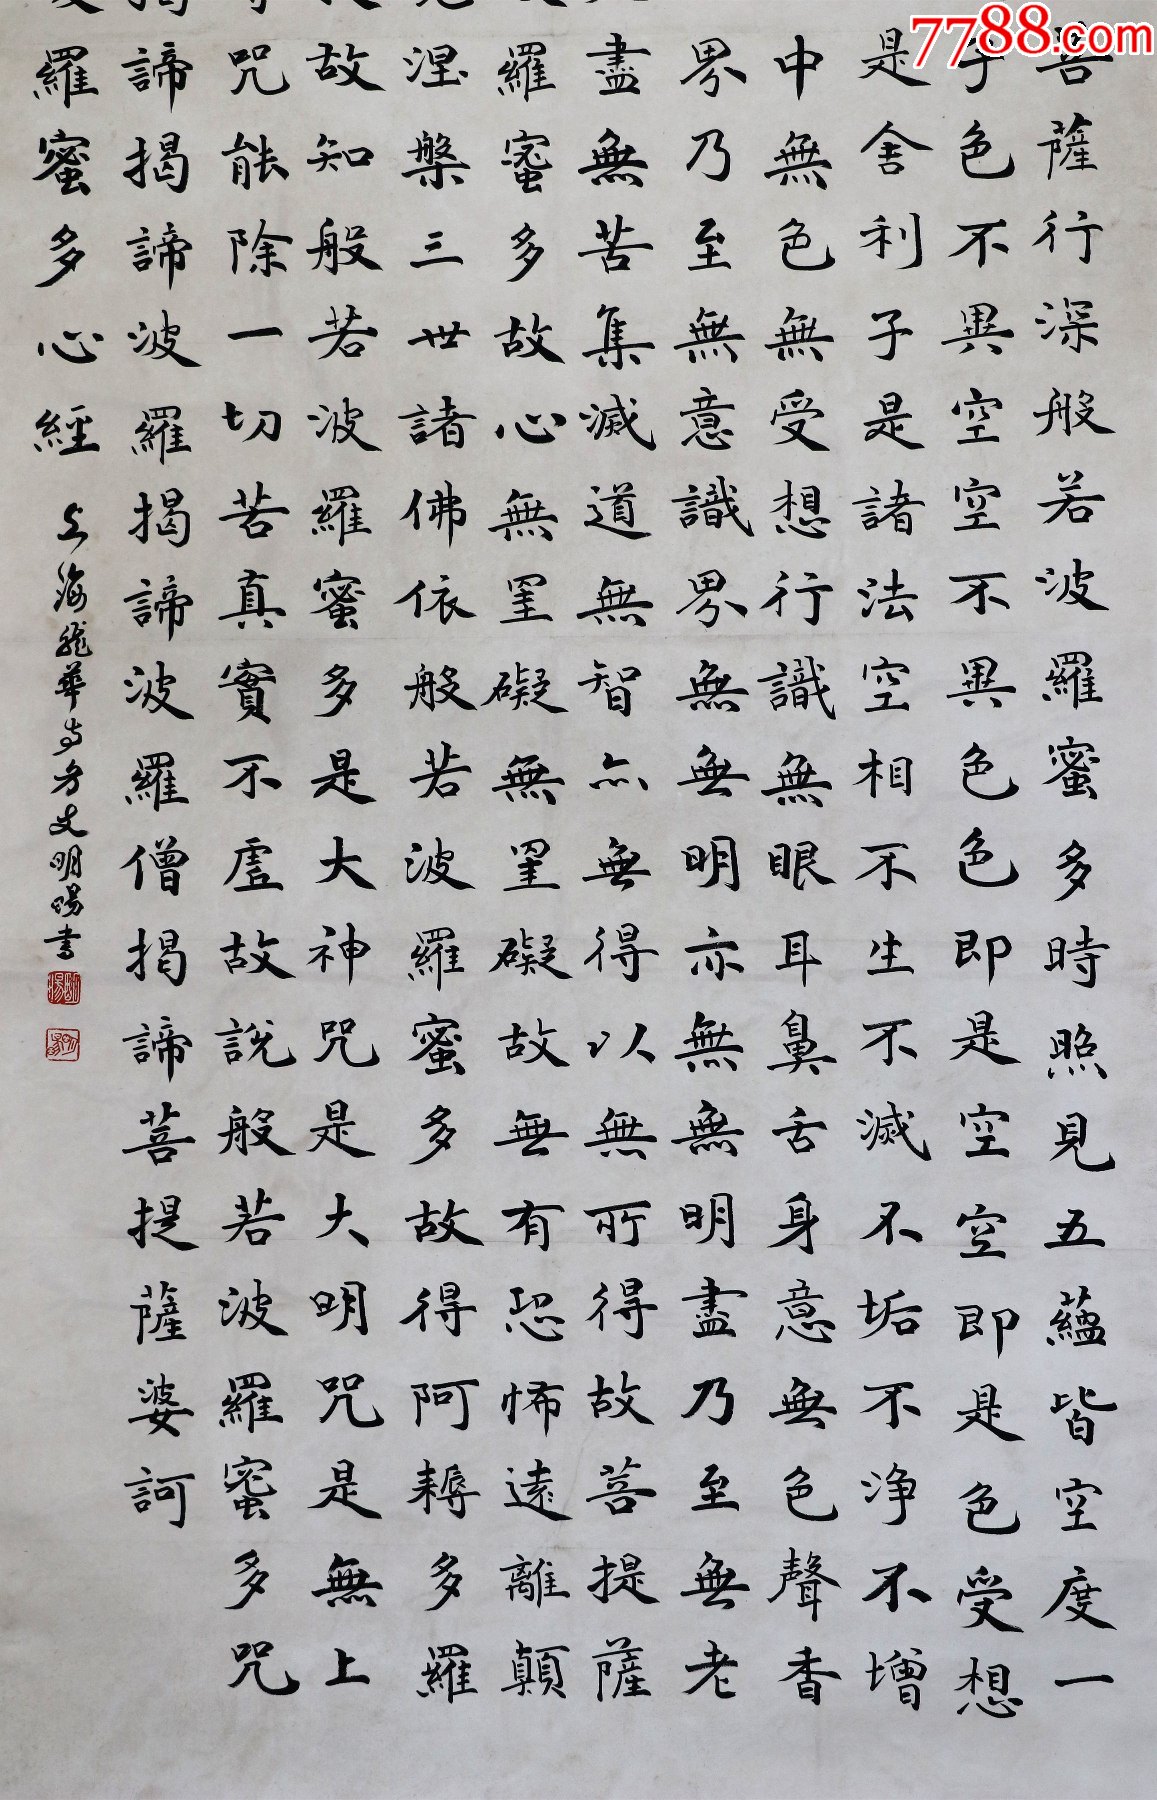 菩薩行深般若波羅蜜多時照見五蘊皆空度一
子色不異空空不異色色即是空空即是色受想
是舍利子是諸法空相不生不滅不垢不净不增
中無色無受想行識無眼耳鼻舌身意無色聲香
界乃至無意識界無無明亦無無明盡乃至無老
盡無苦集滅道無智亦無得以無所得故菩提薩
羅蜜多故心無罣礙無罣礙故無有恐怖遠離顛
涅槃三世諸佛依般若波羅蜜多故得阿耨多羅
故知般若波羅蜜多是大神咒是大明咒是無上
咒能除一切苦真實不虛故說般若波羅蜜多咒
諦揭諦波羅揭諦波羅僧揭諦菩提薩婆訶
羅蜜多心經
上海龍華寺方丈明暘書
明暘
7788.com